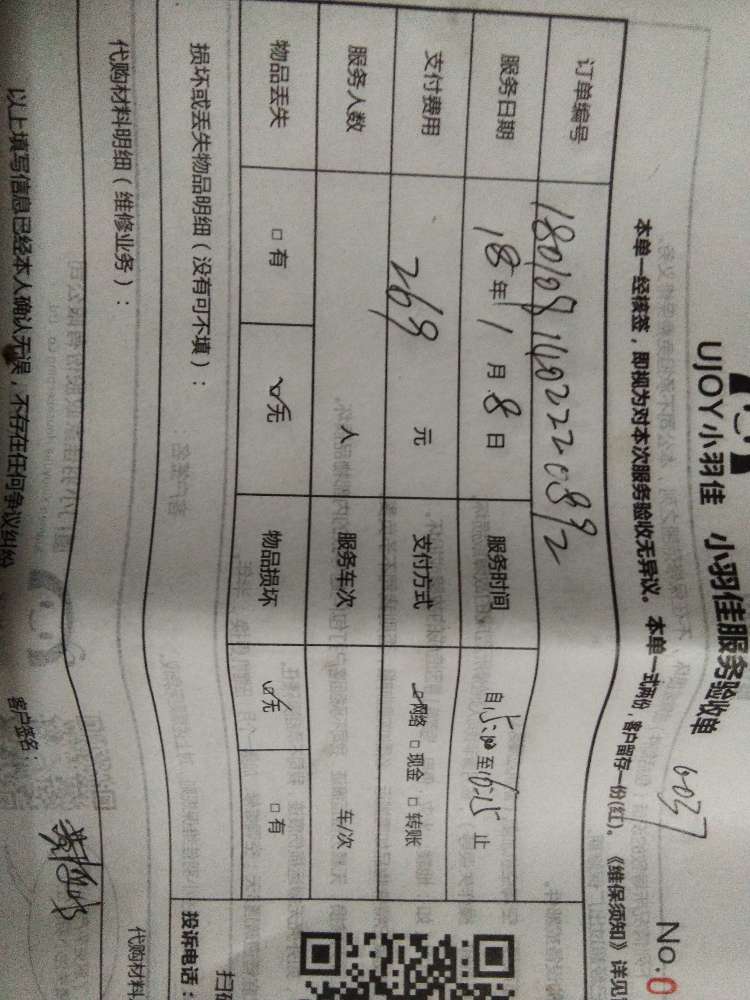 UJOY小羽佳 小羽佳服务验收单 6037 No.0
本单一经核签，即视为对本次服务验收无异议。本单一式两份，客户留存一份(红)。《维保须知》详见
订单编号
服务日期 18年1月8日 服务时间 自15:00至16:15止
支付费用 269 元 支付方式 网络 □现金 □转账
服务人数 人 服务车次 车/次
物品丢失 □有 无 物品损坏 无 □有
损坏或丢失物品明细（没有可不填）：
代购材料明细（维修业务）：
代购材料
投诉电话：
以上填写信息已经本人确认无误，不存在任何争议纠纷 客户签名：